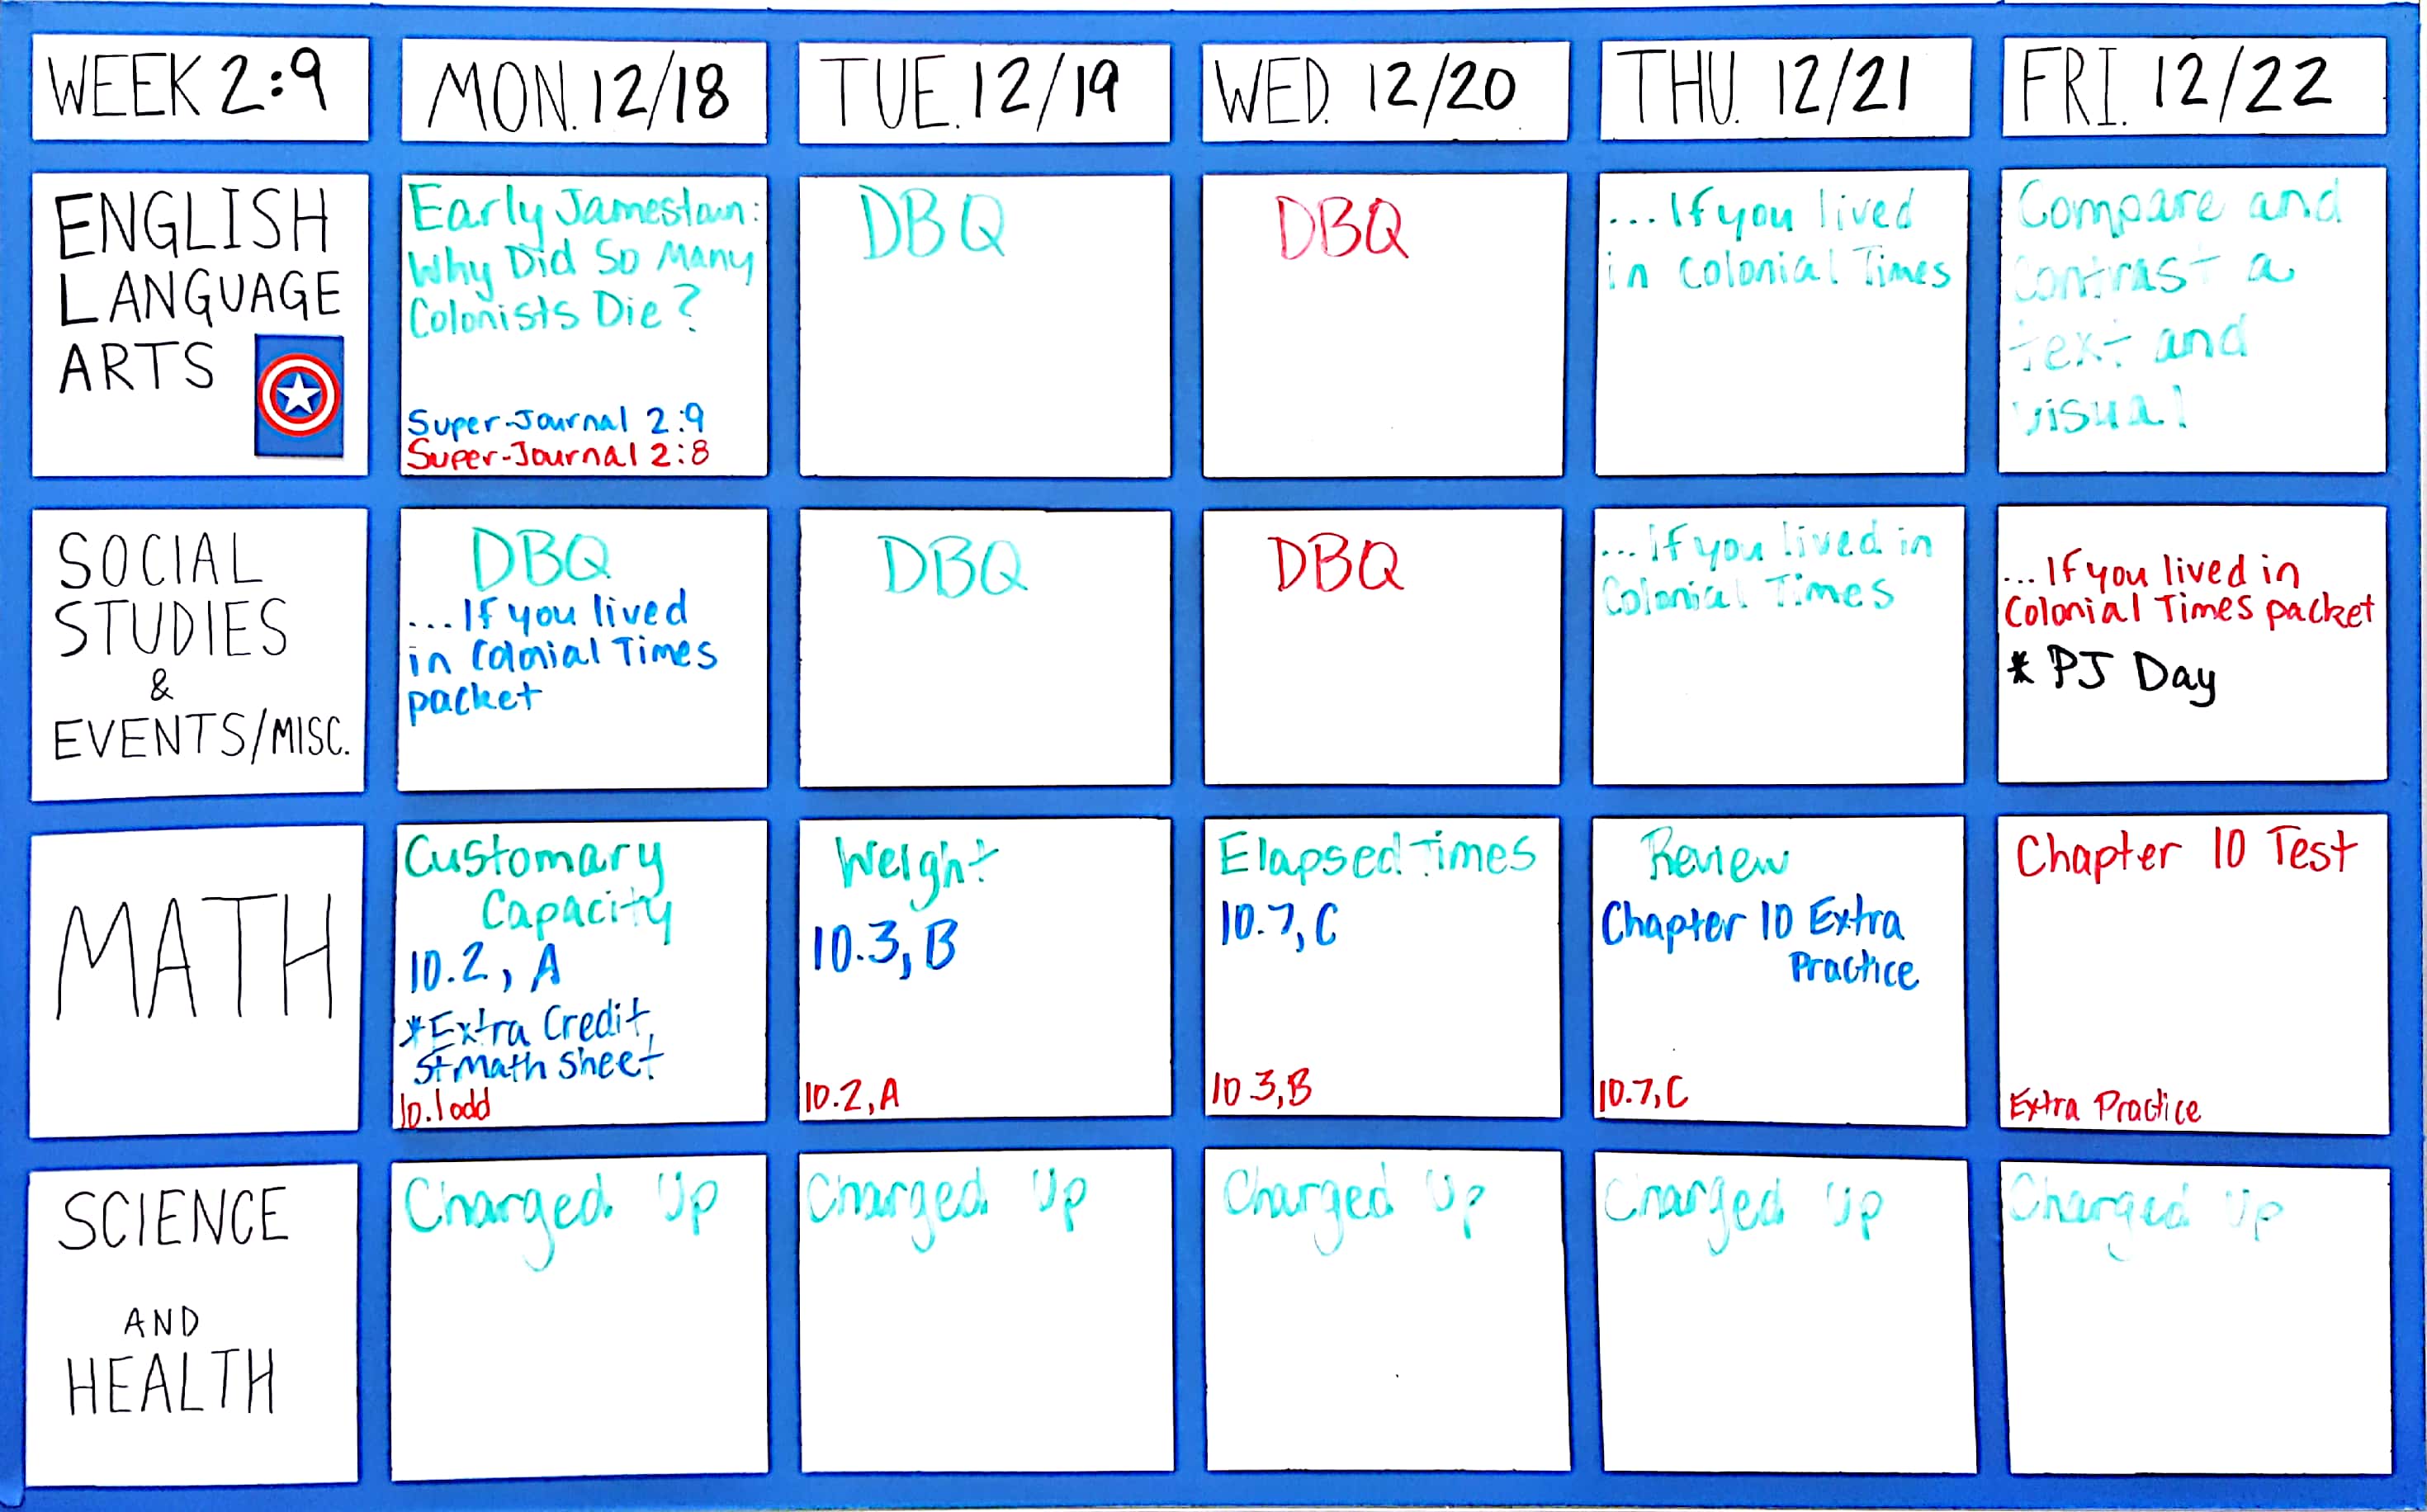 WEEK 2:9
MON. 12/18
TUE. 12/19
WED. 12/20
THU. 12/21
FRI. 12/22
ENGLISH
LANGUAGE
ARTS
Early Jamestown:
Why Did So Many
Colonists Die?
Super-Journal 2:9
Super-Journal 2:8
DBQ
DBQ
...If you lived
in Colonial Times
Compare and
Contrast a
text and
visual
SOCIAL
STUDIES
&
EVENTS/MISC.
DBQ
...If you lived
in Colonial Times
packet
DBQ
DBQ
...If you lived in
Colonial Times
...If you lived in
Colonial Times packet
* PJ Day
MATH
Customary
Capacity
10.2, A
*Extra Credit
STMath sheet
10.1 odd
Weight
10.3, B
10.2, A
Elapsed Times
10.7, C
10.3, B
Review
Chapter 10 Extra
Practice
10.7, C
Chapter 10 Test
Extra Practice
SCIENCE
AND
HEALTH
Charged Up
Charged Up
Charged Up
Charged Up
Charged Up